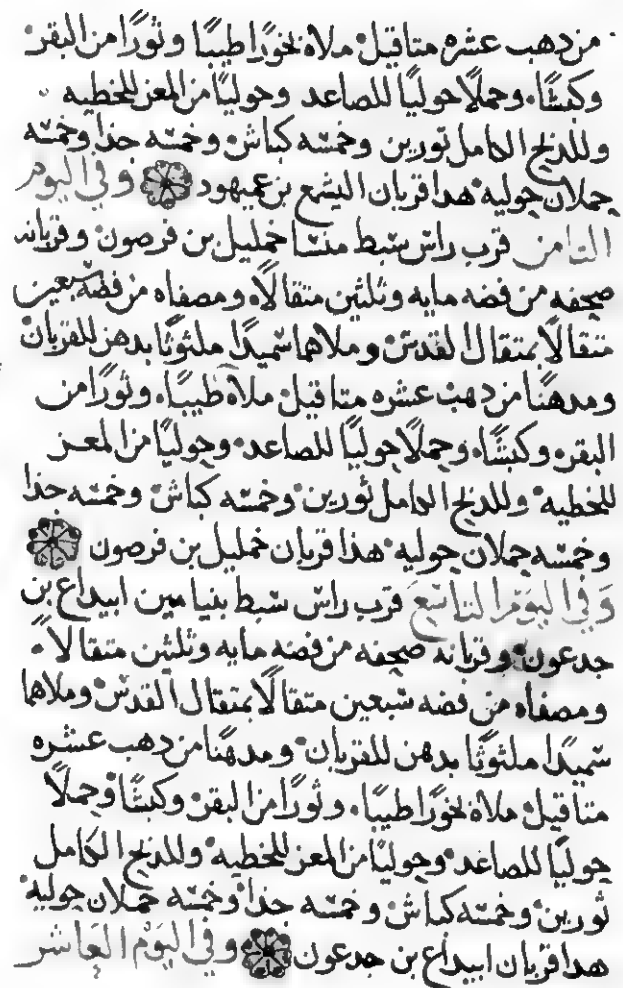 من دهب عشره متاقيل ملاه بخورًا طيبًا وثورًا من البقر
وكبشًا وحملًا حوليًا للصاعد وحوليًا من المعز للخطيه
وللذبح الكامل ثورين وخمسه كباش وخمسه جذا وخمسه
حملان حوليه هدا قربان اليشمع بن عميهود وفي اليوم
التامن قرب راس سبط منسا خمليل بن فرصون وقربانه
صحفه من فضه مايه وثلثين متقالًا ومصفاه من فضه سبعين
متقالًا بمتقال القدس وملاهما سميدًا ملثوثًا بدهن للقربان
ومدهنًا من دهب عشره متاقيل ملاه طيبًا وثورًا من
البقر وكبشًا وحملًا حوليًا للصاعد وحوليًا من المعز
للخطيه وللذبح الكامل ثورين وخمسه كباش وخمسه جذا
وخمسه حملان حوليه هذا قربان خمليل بن فرصون
وفي اليوم التاسع قرب راس سبط بنيامين ابيداع بن
جدعون وقربانه صحفه من فضه مايه وثلثين متقالاً
ومصفاه من فضه سبعين متقالًا بمتقال القدس وملاهما
سميدًا ملثوثًا بدهن للقربان ومدهنًا من دهب عشره
متاقيل ملاه بخورًا طيبًا وثورًا من البقر وكبشًا وحملًا
حوليًا للصاعد وحوليًا من المعز للخطيه وللذبح الكامل
ثورين وخمسه كباش وخمسه جذا وخمسه حملان حوليه
هدا قربان ابيداع بن جدعون وفي اليوم العاشر